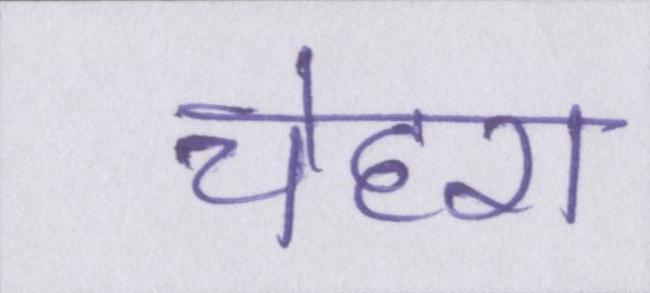 चेहरा